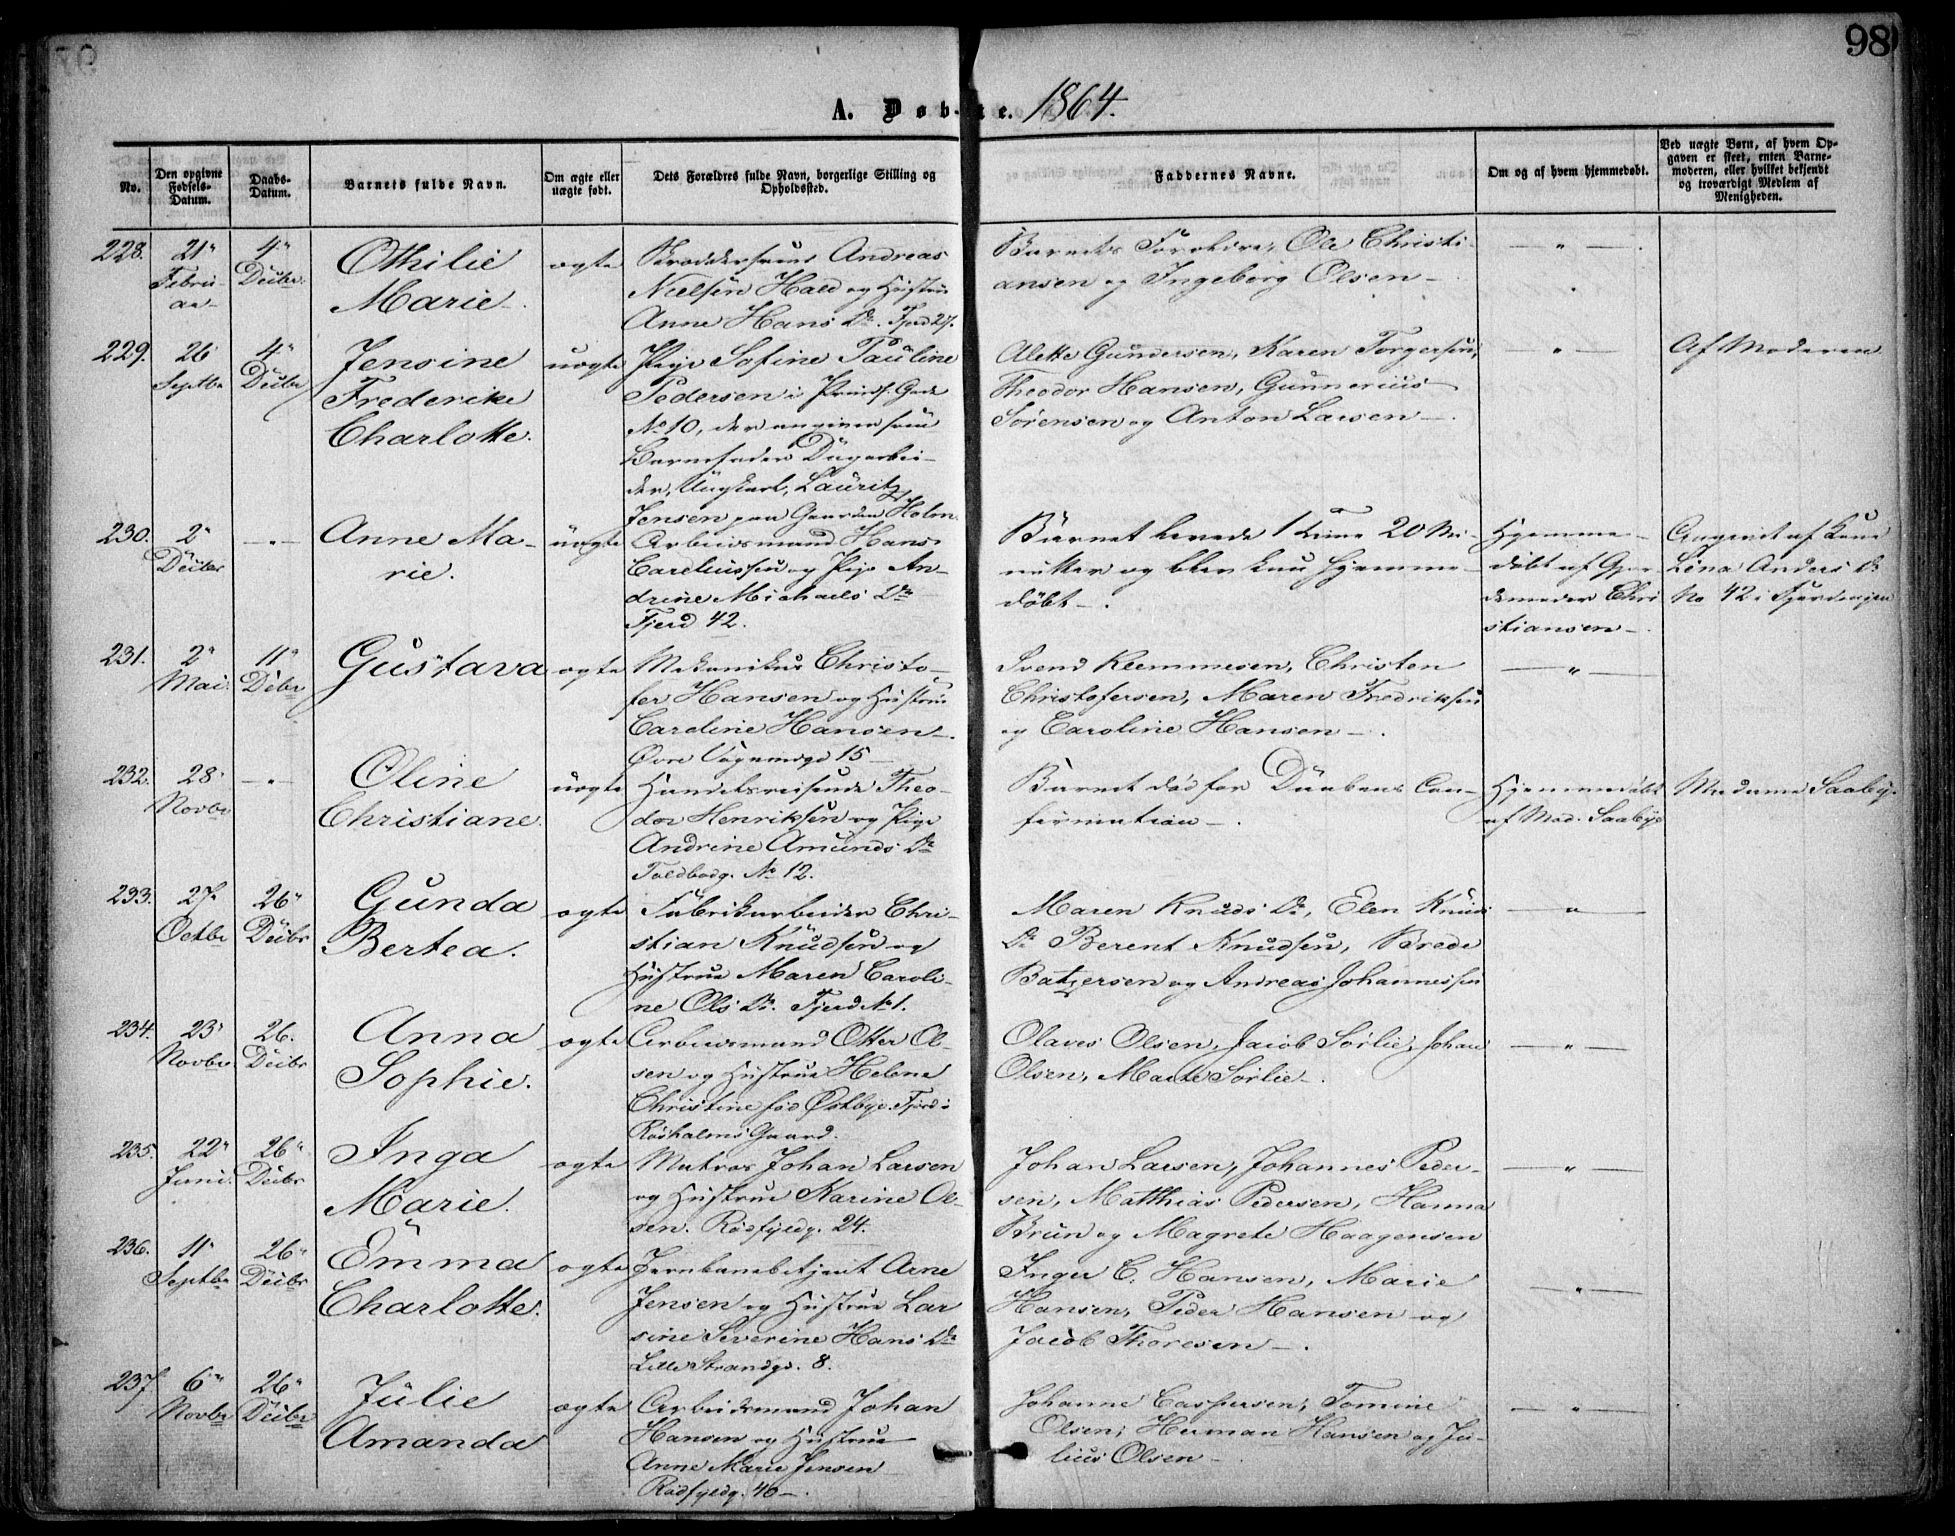 98
A. Døbte. 1864.
No.
Den opgivne Fødsels-Datum.
Daabs-Datum.
Barnets fulde Navn.
Om ægte eller uægte født.
Dets Forældres fulde Navn, borgerlige Stilling og Opholdssted.
Faddernes Navne.
Om og af hvem hjemmedøbt.
Ved uægte Børn, af hvem Opgaven er skeet, enten Barnemoderen, eller hvilket bekjendt og troværdigt Medlem af Menigheden.
228. 21" Februar 4" Decbr.
Othilie
Marie
ægte
Skræddersvend Andreas
Nielsen Hald og Hustru
Anne Hans Dr. Fjerd 27.
Barnets Forældre, Ole Christi-
ansen og Ingeborg Olsen
229. 26 Septbr 4" Decbr
Jensine
Frederike
Charlotte.
uægte
Pige Sofine Pauline
Pedersen i Prinds. Gade
No 10, der angiver som
Barnefader Dagarbei-
der, Ungkarl, Lauritz
Jensen paa Gaarden Holm
Alette Gundersen, Karen Torgersen,
Theodor Hansen, Gunnerius
Sørensen og Anton Larsen
Af Moderen
230. 2" Decbr
Anne Ma-
rie.
uægte
Arbeidsmand Hans
Careliussen og Pige An-
drine Michaels Dr
Fjerd 42.
Barnet levede 1 Time 20 Mi-
nutter og blev kun hjemme-
døbt
Hjemme-
døbt af Gjor-
demoder Chri
stiansen
Angivet af Kone
Lena Anders Dr
No 42 i Fjerdingen
231. 2" Mai. 11" Decbr
Gustava
ægte
Mekanikus Christo-
fer Hansen og Hustru
Caroline Hansen
Øvre Vognmdgd 15
Svend Klemmesen, Christen
Christofersen, Maren Fredriksen
og Caroline Hansen
232. 28" Novbr
Oline
Christiane.
uægte
Handelsreisende Theo-
dor Henriksen og Pige
Andrine Amunds Dr
Toldbodg. No 12.
Barnet død før Daabens Con-
firmation
Hjemmedøbt
af Mad. Saabye
Madame Saabye.
233. 27" Octbr 26" Decbr
Gunda
Bertea.
ægte
Fabrikarbeider Chri-
stian Knudsen og
Hustrue Maren Caroli-
ne Ols Dr. Fjerd No 1.
Maren Knuds Dr, Elen Knuds
Dr Berent Knudsen, Brede
Batzersen og Andreas Johannessen
234. 23" Novbr 26. Decbr
Anna
Sophie.
ægte
Arbeidsmand Otter Ol-
sen og Hustrue Helene
Christine fød Østbye. Fjerd i
Røsholms Gaard.
Olaves Olsen, Jacob Sørlie, Johan
Olsen, Marte Sørlie
235. 22" Juni. 26" Decbr
Inga
Marie.
ægte
Matros Johan Larsen
og Hustrue Karine Ol-
sen. Rødfyldg. 24.
Johan Larsen, Johannes Peder-
sen, Matthias Pedersen, Hanna
Brun og Magrete Haagensen
236. 11" Septbr 26" Decbr
Emma
Charlotte.
ægte
Jernbanebetjent Arne
Jensen og Hustrue Lar
sine Severine Hans Dr
Lille Strandgd. 8.
Inger C. Hansen, Marie
Hansen, Peder Hansen og
Jacob Thoresen
237. 6" Novbr 26" Decbr
Julie
Amanda
ægte
Arbeidsmand Johan
Hansen og Hustrue
Anne Marie Jensen
Rødfyldg. 40
Johanne Caspersen, Tomine
Olsen, Herman Hansen og Ju-
lius Olsen